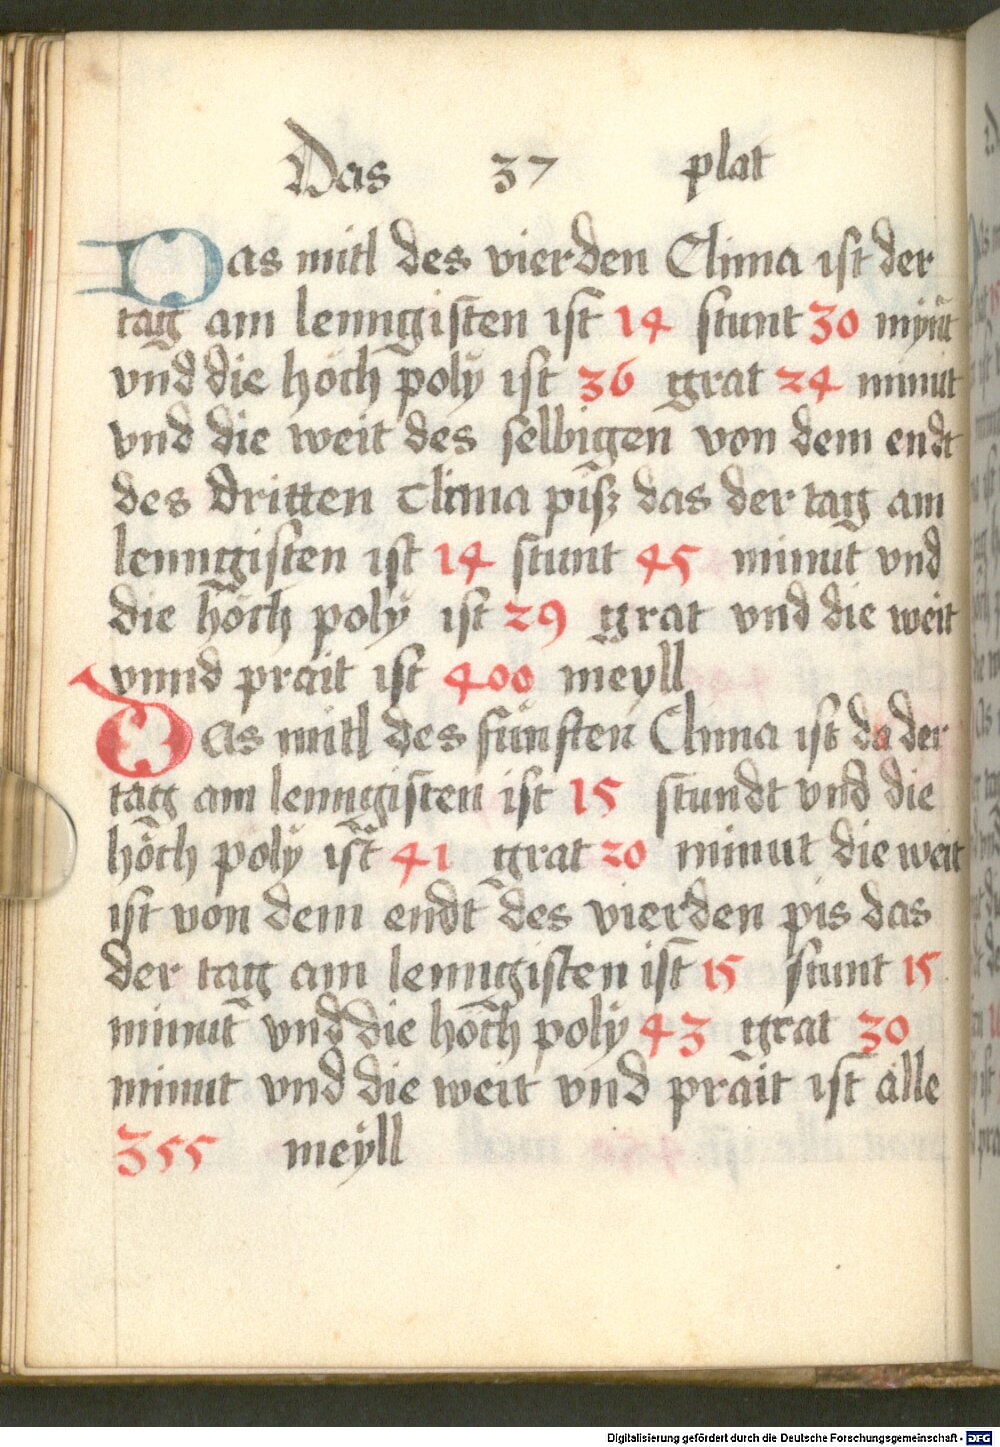 Das 37 plat
Das mitl des vierden Clima ist der
tag am lenngisten ist 14 stunt 30 mynut
vnd die höch poly ist 36 grat 24 minut
vnd die weit des selbigen von dem endt
des dritten Clima pisz das der tag am
lenngisten ist 14 stunt 45 minut vnd
die höch polÿ ist 29 grat vnd die weit
vnnd prait ist 400 meÿll
Das mitl des fünften Clima ist da der
tag am lenngisten ist 15 stundt vnd die
höch polÿ ist 41 grat 20 minut die weit
ist von dem endt des vierden pis das
der tag am lenngisten ist 15 stunt 15
minut vnd die höch polÿ 43 grat 30
minut vnd die weit vnd prait ist alle
355 meÿll
Digitalisierung gefördert durch die Deutsche Forschungsgemeinschaft - DFG